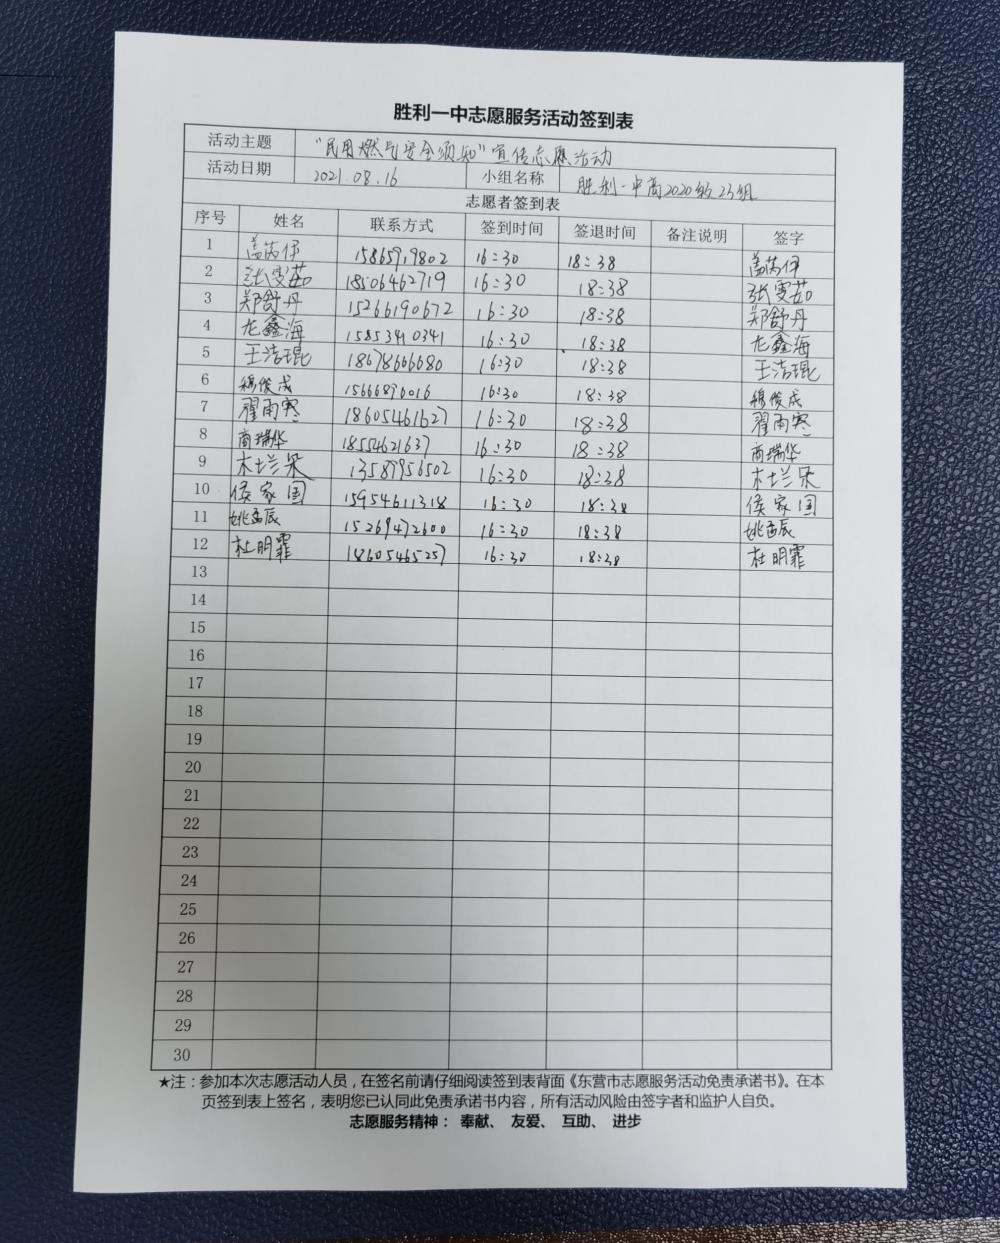 胜利一中志愿服务活动签到表
活动主题 “民用燃气安全须知”宣传志愿活动
活动日期 2021.08.16 小组名称 胜利一中高2020级23组
志愿者签到表
序号 姓名 联系方式 签到时间 签退时间 备注说明 签字
1 盖芮伊 15865719802 16:30 18:38 盖芮伊
2 张雯茹 18506462719 16:30 18:38 张雯茹
3 郑舒丹 15266190672 16:30 18:38 郑舒丹
4 尤鑫海 15853410341 16:30 18:38 尤鑫海
5 王洁琨 18678666680 16:30 18:38 王洁琨
6 穆俊成 15666896016 16:30 18:38 穆俊成
7 翟雨寒 18605461627 16:30 18:38 翟雨寒
8 商瑞华 18554621637 16:30 18:38 商瑞华
9 木兰朵 13589956502 16:30 18:38 木兰朵
10 侯家国 15954611318 16:30 18:38 侯家国
11 姚孟辰 15269472600 16:30 18:38 姚孟辰
12 杜明霏 18605465257 16:30 18:38 杜明霏
13
14
15
16
17
18
19
20
21
22
23
24
25
26
27
28
29
30
★注：参加本次志愿活动人员，在签名前请仔细阅读签到表背面《东营市志愿服务活动免责承诺书》。在本
页签到表上签名，表明您已认同此免责承诺书内容，所有活动风险由签字者和监护人自负。
志愿服务精神： 奉献、 友爱、 互助、 进步